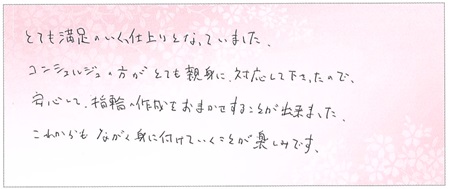 とても満足のいく、仕上りとなっていました。
コンシェルジュの方がとても親身に、対応して下さったので、
安心して、指輪の作成をおまかせすることが出来ました。
これからも ながく身に付けていくことが楽しみです。